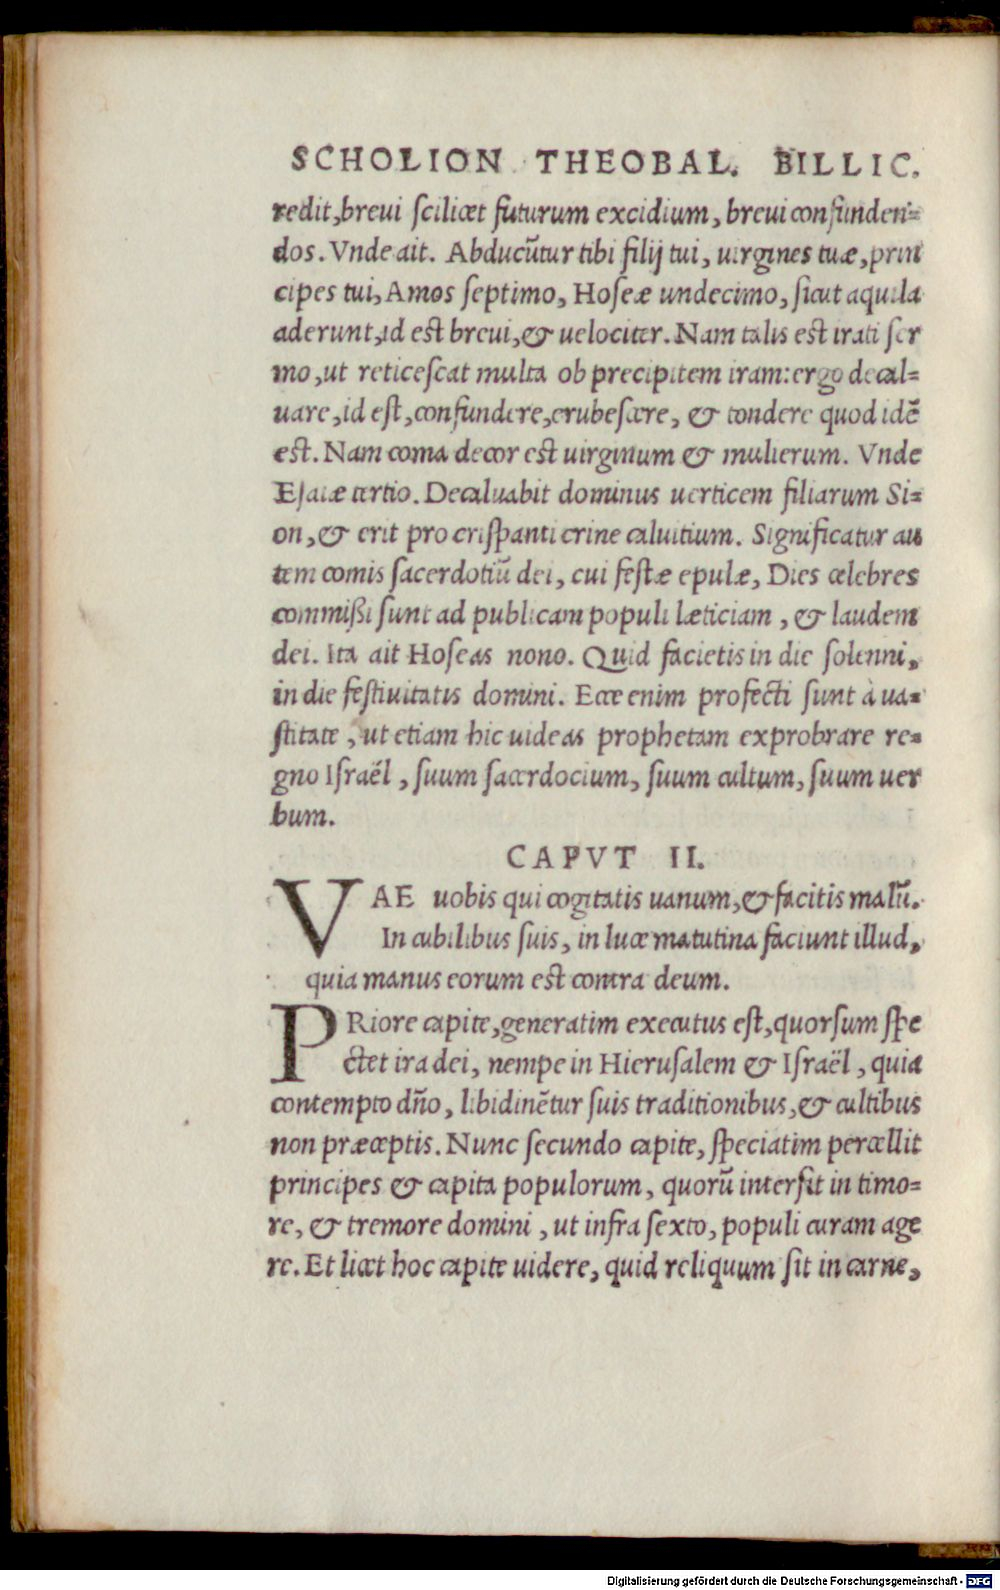 SCHOLION THEOBAL. BILLIC.
redit, breui scilicet futurum excidium, breui confunden-
dos. Vnde ait. Abducũtur tibi filij tui, uirgines tuæ, prin
cipes tui, Amos septimo, Hoseæ undecimo, sicut aquila
aderunt, id est breui, & uelociter. Nam talis est irati ser
mo, ut reticescat multa ob precipitem iram: ergo decal=
uare, id est, confundere, erubescere, & tondere quod idẽ
est. Nam coma decor est uirginum & mulierum. Vnde
Esaiæ tertio. Decaluabit dominus uerticem filiarum Si=
on, & erit pro crispanti crine caluitium. Significatur au
tem comis sacerdotiũ dei, cui festæ epulæ, Dies celebres
commißi sunt ad publicam populi læticiam, & laudem
dei. Ita ait Hoseas nono. Quid facietis in die solenni,
in die festiuitatis domini. Ecce enim profecti sunt à ua=
stitate, ut etiam hic uideas prophetam exprobrare re=
gno Israël, suum sacerdocium, suum cultum, suum uer
bum.
CAPVT II.
VAE uobis qui cogitatis uanum, & facitis malũ.
In cubilibus suis, in luce matutina faciunt illud,
quia manus eorum est contra deum.
PRiore capite, generatim executus est, quorsum spe
ctet ira dei, nempe in Hierusalem & Israël, quia
contempto dño, libidinẽtur suis traditionibus, & cultibus
non præceptis. Nunc secundo capite, speciatim percellit
principes & capita populorum, quorũ intersit in timo=
re, & tremore domini, ut infra sexto, populi curam age
re. Et licet hoc capite uidere, quid reliquum sit in carne,
Digitalisierung gefördert durch die Deutsche Forschungsgemeinschaft - DFG